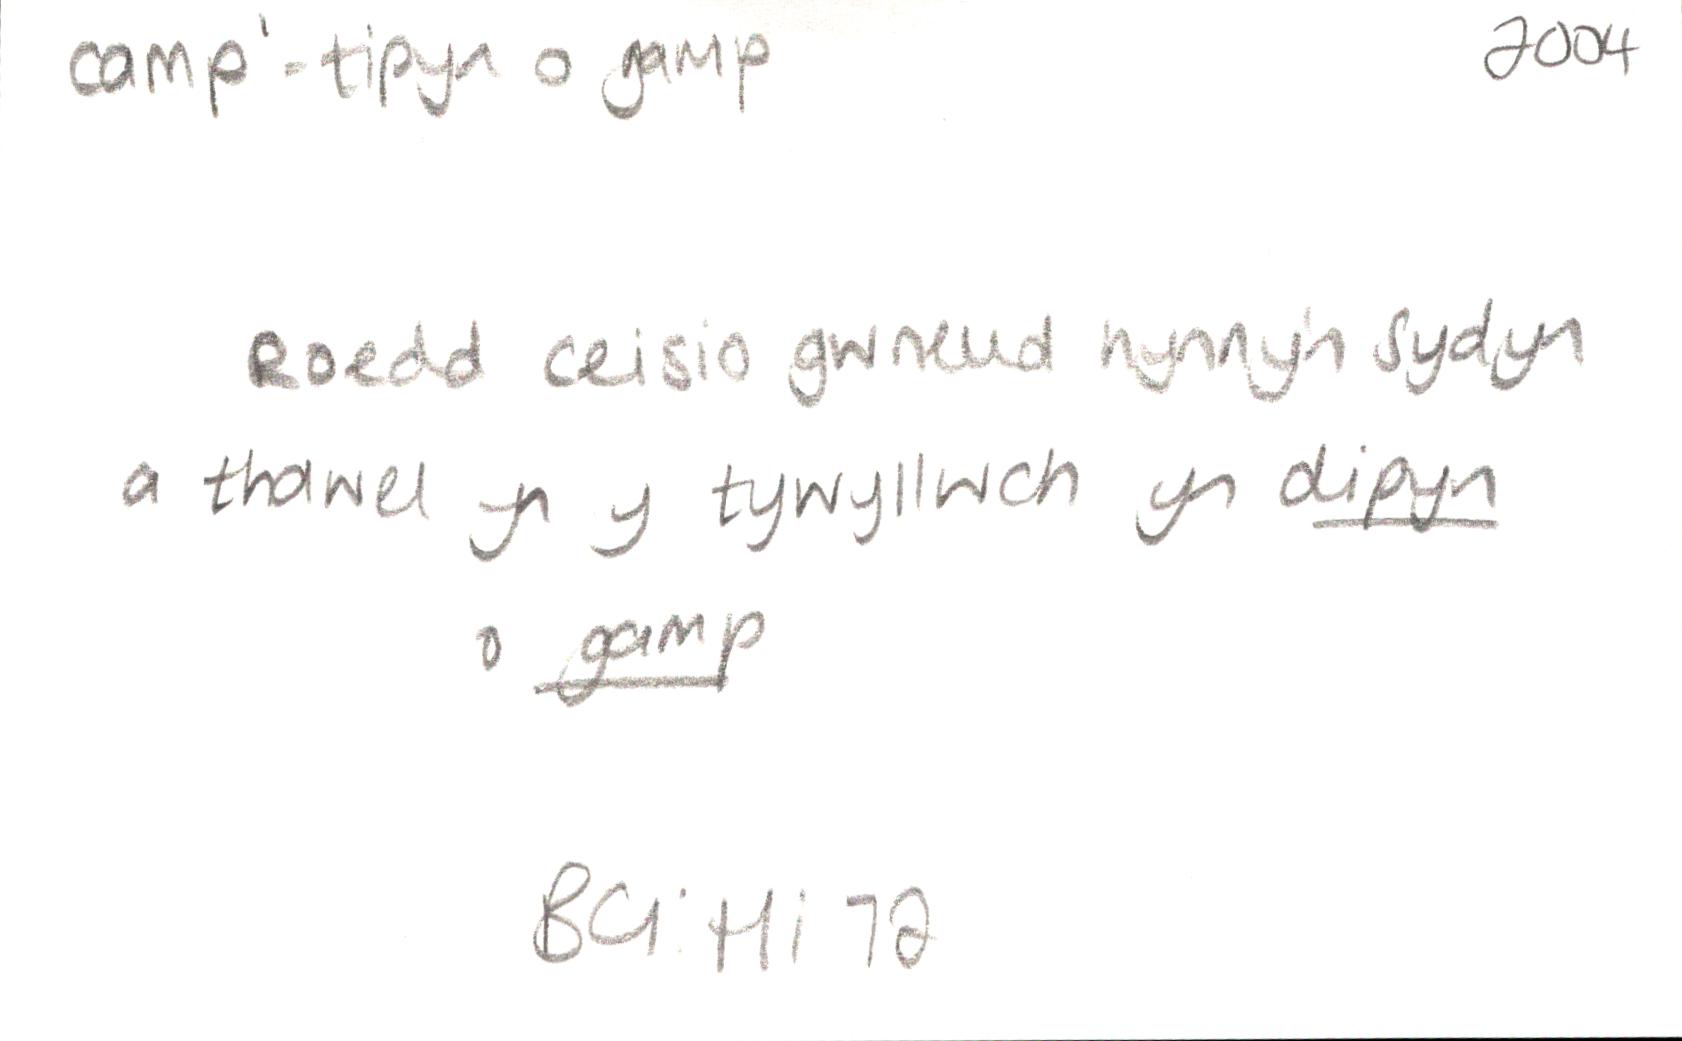 camp¹ - tipyn o gamp 2004
Roedd ceisio gwneud hynny'n sydyn
a thawel yn y tywyllwch yn dipyn
o gamp
BG: Hi 72